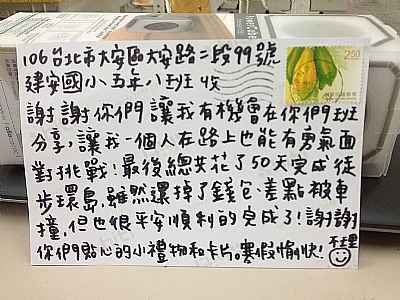 106台北市大安區大安路二段99號
建安國小五年八班 收
謝謝你們讓我有機會在你們班
分享,讓我一個人在路上也能有勇氣面
對挑戰!最後總共花了50天完成徒
步環島,雖然還掉了錢包、差點被車
撞,但也很平安順利的完成了!謝謝
你們貼心的小禮物和卡片。寒假愉快!
250